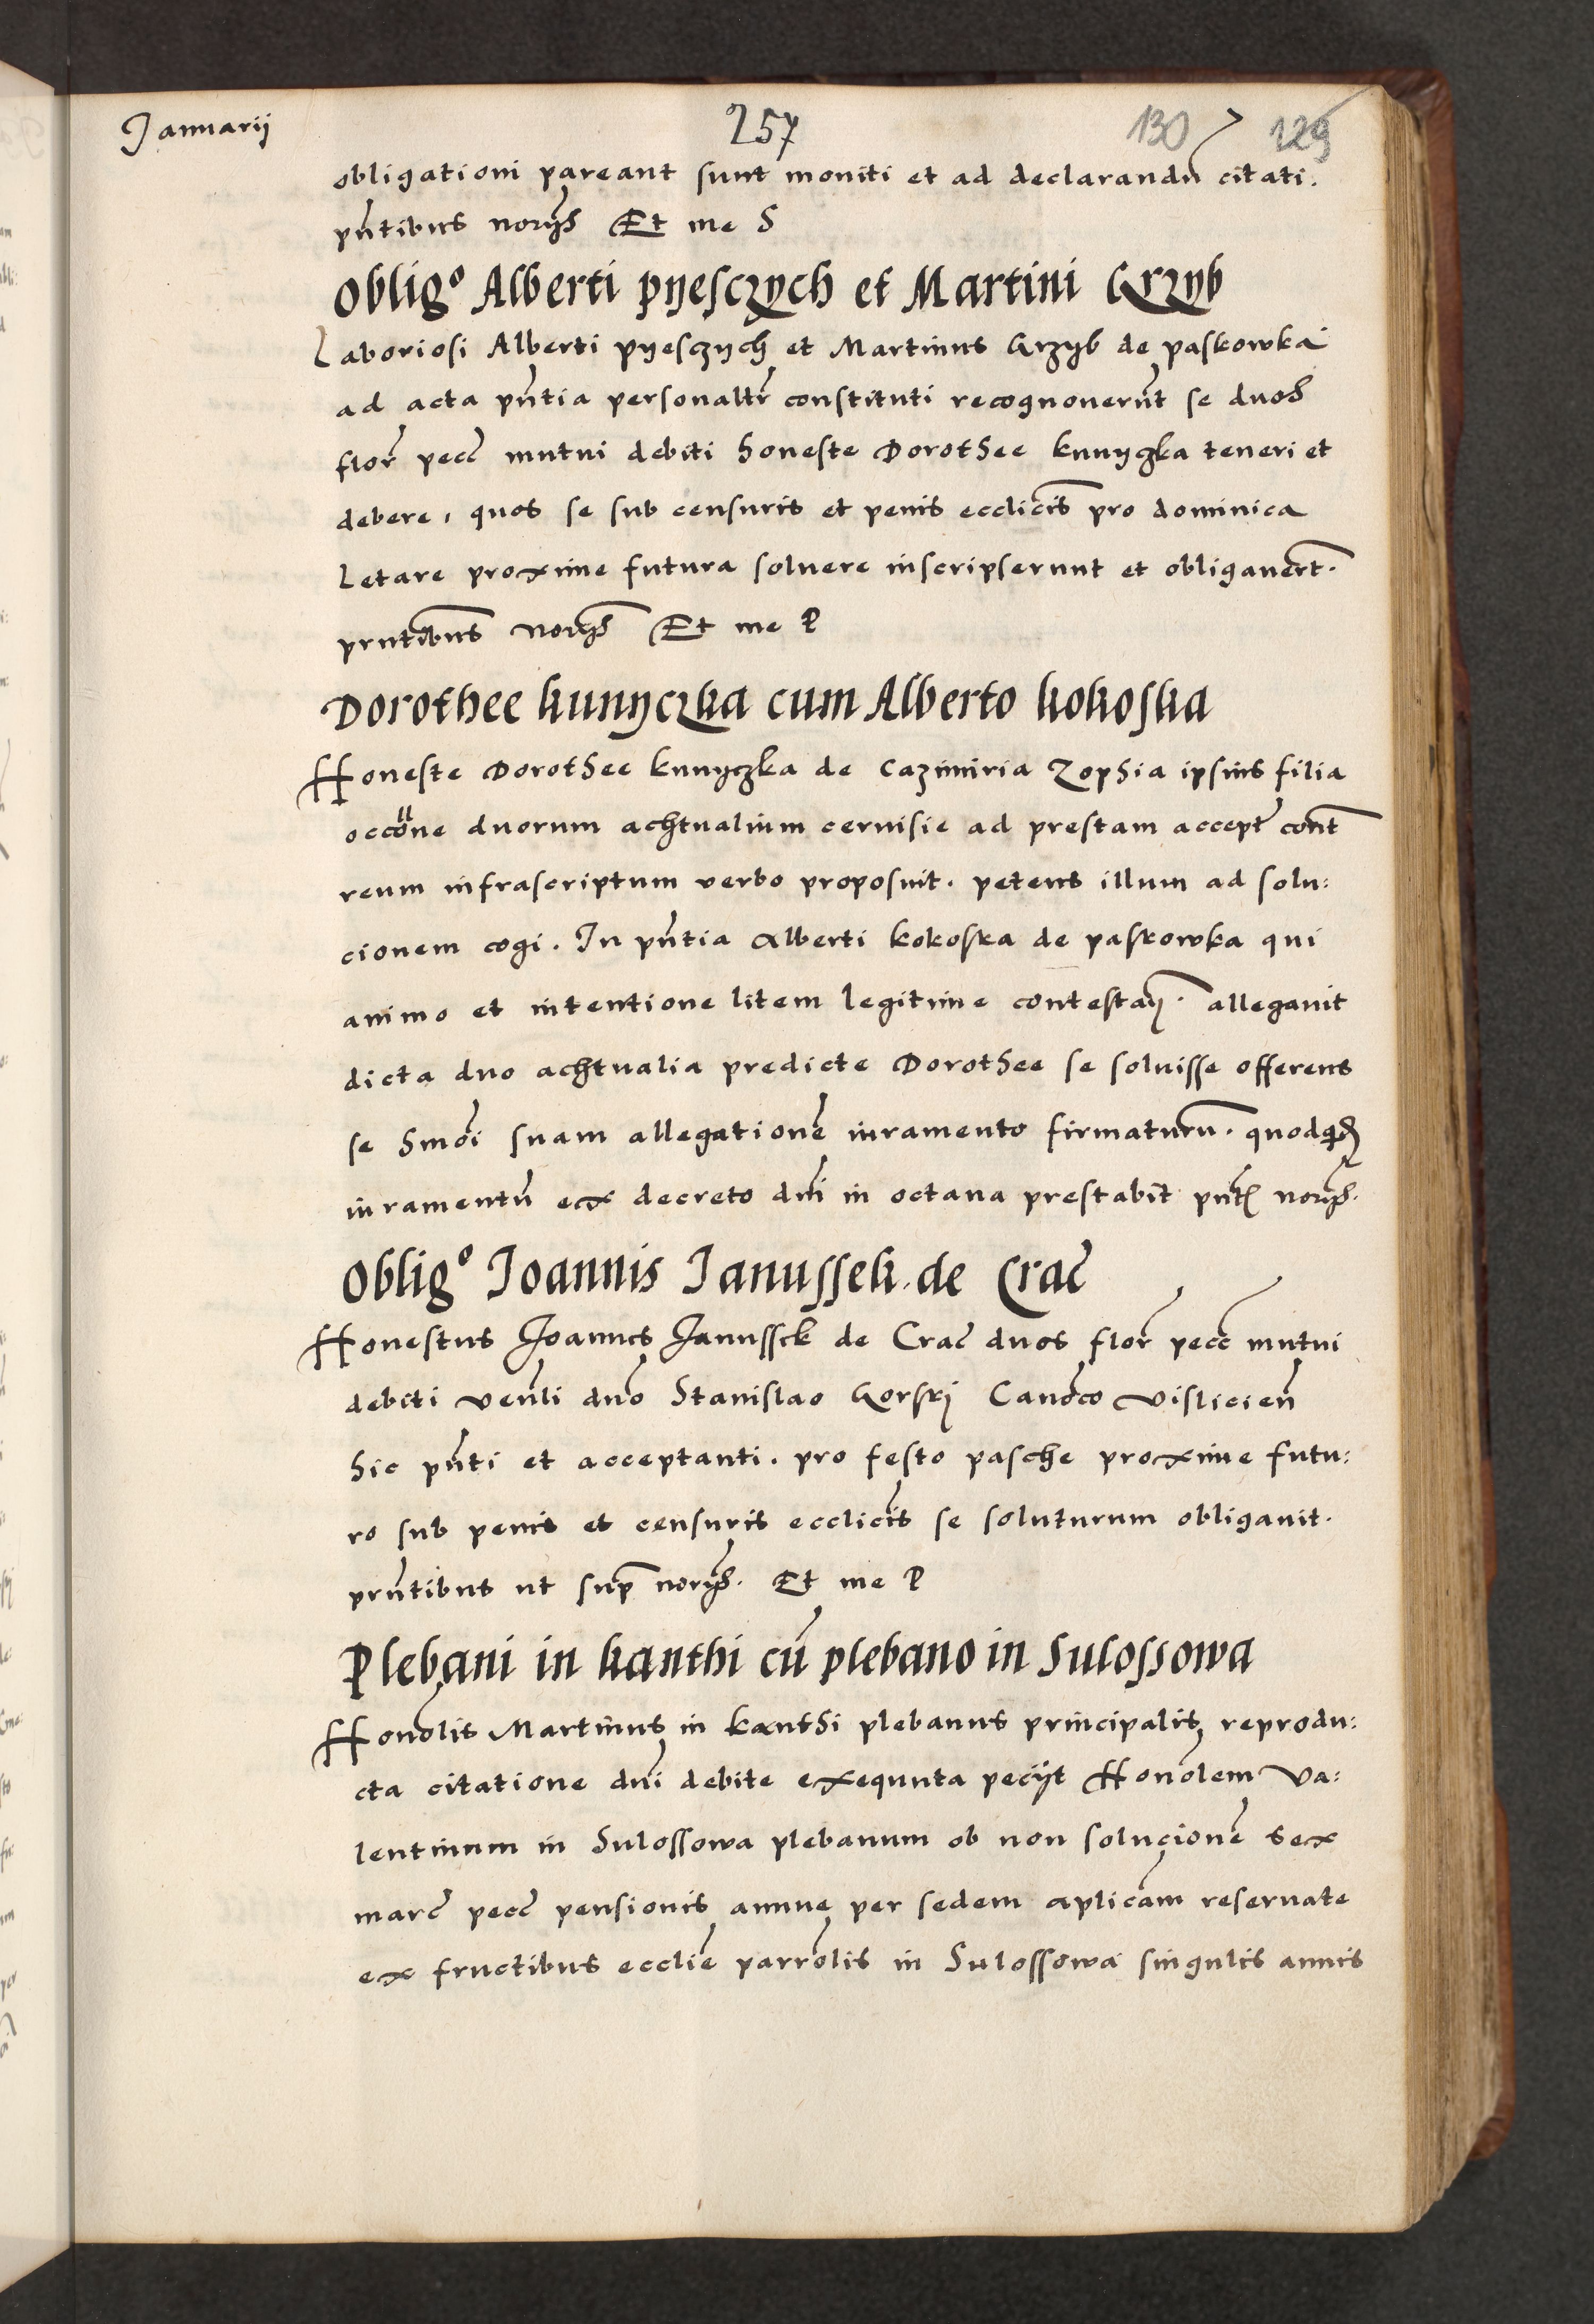 Januarij
257
130 129
obligationi pareant sunt moniti et ad declarandũ citati.
pñtibus norijs Et me S
Oblig° Alberti pyesczych et Martini Grzyb
Laboriosi Alberti pyesczych et Martinus Grzyb de paskowka
ad acta pñtia personaltr̃ constituti recognouerũt se duos
flor̃ pecc̃ mutui debiti honeste Dorothee kunyczka teneri et
debere, quos se sub censuris et penis ecclicis̃ pro dominica
letare proxime futura soluere inscripserunt et obligauer̃t.
prntibus̃ norijs̃ Et me P
Dorothee kunyczka cum Alberto kokoska
Honeste Dorothee kunyczka de Cazimiria Zophia ipsius filia
occõne duorum achtualium ceruisie ad prestam accept̃ cont̃
reum infrascriptum verbo proposuit. petens illum ad solu:
cionem cogi. In pñtia Alberti kokoska de paskowka qui
animo et intentione litem legitime contestañ. allegauit
dicta duo achtualia predicte Dorothee se soluisse offerens
se hmõi suam allegationẽ iuramento firmaturũ. quodqid̃
iuramentũ ex decreto dñi in octaua prestabit pñt̃ norijs.
Oblig° Joannis Janussek. de Crac̃
Honestus Joannes Janussek de Crac̃ duos flor̃ pecc̃ mutui
debiti veñli dño Stanislao Gorskj Canõco vislicieñ
hic pñti et acceptanti. pro festo pasche proxime futu:
ro sub penis et censuris ecclicis̃ se soluturum obligauit.
prñtibus ut sup̃ norijs. Et me P
Plebani in kanthi cũ plebano in Sulossowa
Honõlis Martinus in kanthi plebanus principalis reprodu:
cta citatione dñi debite exequuta pecijt Honõlem Va:
lentinum in Sulossowa plebanum ob non solucionẽ sex
marc̃ pecc̃ pensionis annue per sedem aplicãm reseruate
ex fructibus ecclie̅ parrõlis in Sulossowa singulis annis